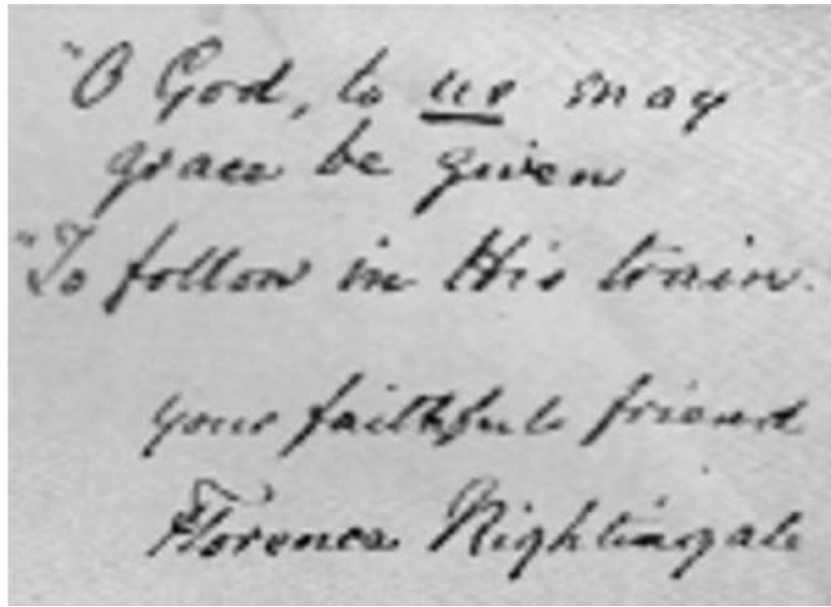 "O God, to us may
grace be given
"To follow in His train.
your faithful friend
Florence Nightingale